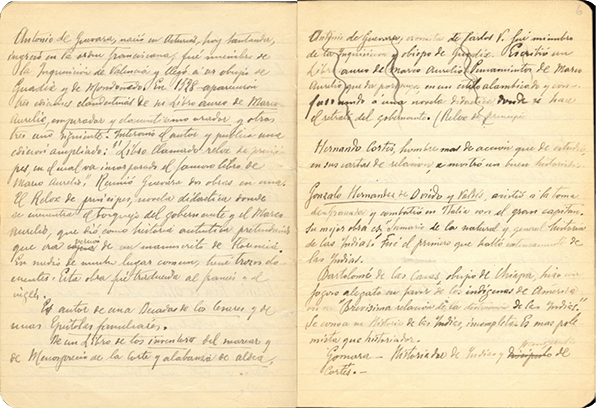 Antonio de Guevara, nació en Asturias, hoy Santander,
ingresó en la orden franciscana, fué miembro de
la Inquisición de Valencia y llegó a ser obispo de
Guadix y de Mondoñedo. En 1528 aparecieron
tres ediciones clandestinas de su Libro áureo de Marco
Aurelio, emperador y elocuentísimo orador, y otras
tres año siguiente. Intervino el autor y publicó una
edición ampliada: "Libro llamado relox de prínci-
pes, en el cual va incorporado el famoso libro de
Marco Aurelio". Reunió Guevara dos obras en una:
El Relox de príncipes, novela didáctica donde
se encuentra el del gobernante y el Marco
Aurelio, que dió como historia auténtica pretendiendo
que era copia de un manuscrito de Florencia.
En medio de mucho lugar común, tiene trozos elo-
cuentes. Esta obra fué traducida al francés e
inglés.
Es autor de una Década de los Césares y de
unas Epístolas familiares.
De un Libro de los inventores del marear y
de Menosprecio de la Corte y alabanza de aldea.
6
Antonio de Guevara, cronista de Carlos V. fué miembro
de la Inquisición y obispo de Guadix. Escribió un
Libro áureo de Marco Aurelio, Pensamientos de Marco
Aurelio, que da por en un estilo alambicado y con-
una novela didáctica donde se hace
el retrato del gobernante. (Relox de príncipes
Hernando Cortés, hombre mas de acción que de estudio
en sus cartas de relación, se mostró un buen historiador.
Gonzalo Hernández de Oviedo y Valdés, asistió a la toma
de Granada y combatió en Italia con el gran capitán.
Su mejor obra es Sumario de la natural y general historia
de las Indias. Fué el primero que habló de
las Indias.
Bartolomé de las Casas, obispo de Chiapa, hizo un
fogoso alegato en favor de los indígenas de América
en su "Brevísima relación de la destrucción de las Indias".
Se conoce su Historia de las Indias, incompleta. Es mas pole-
mista que historiador.
Gomara — Historiador de Indias y discípulo de
Cortés. —